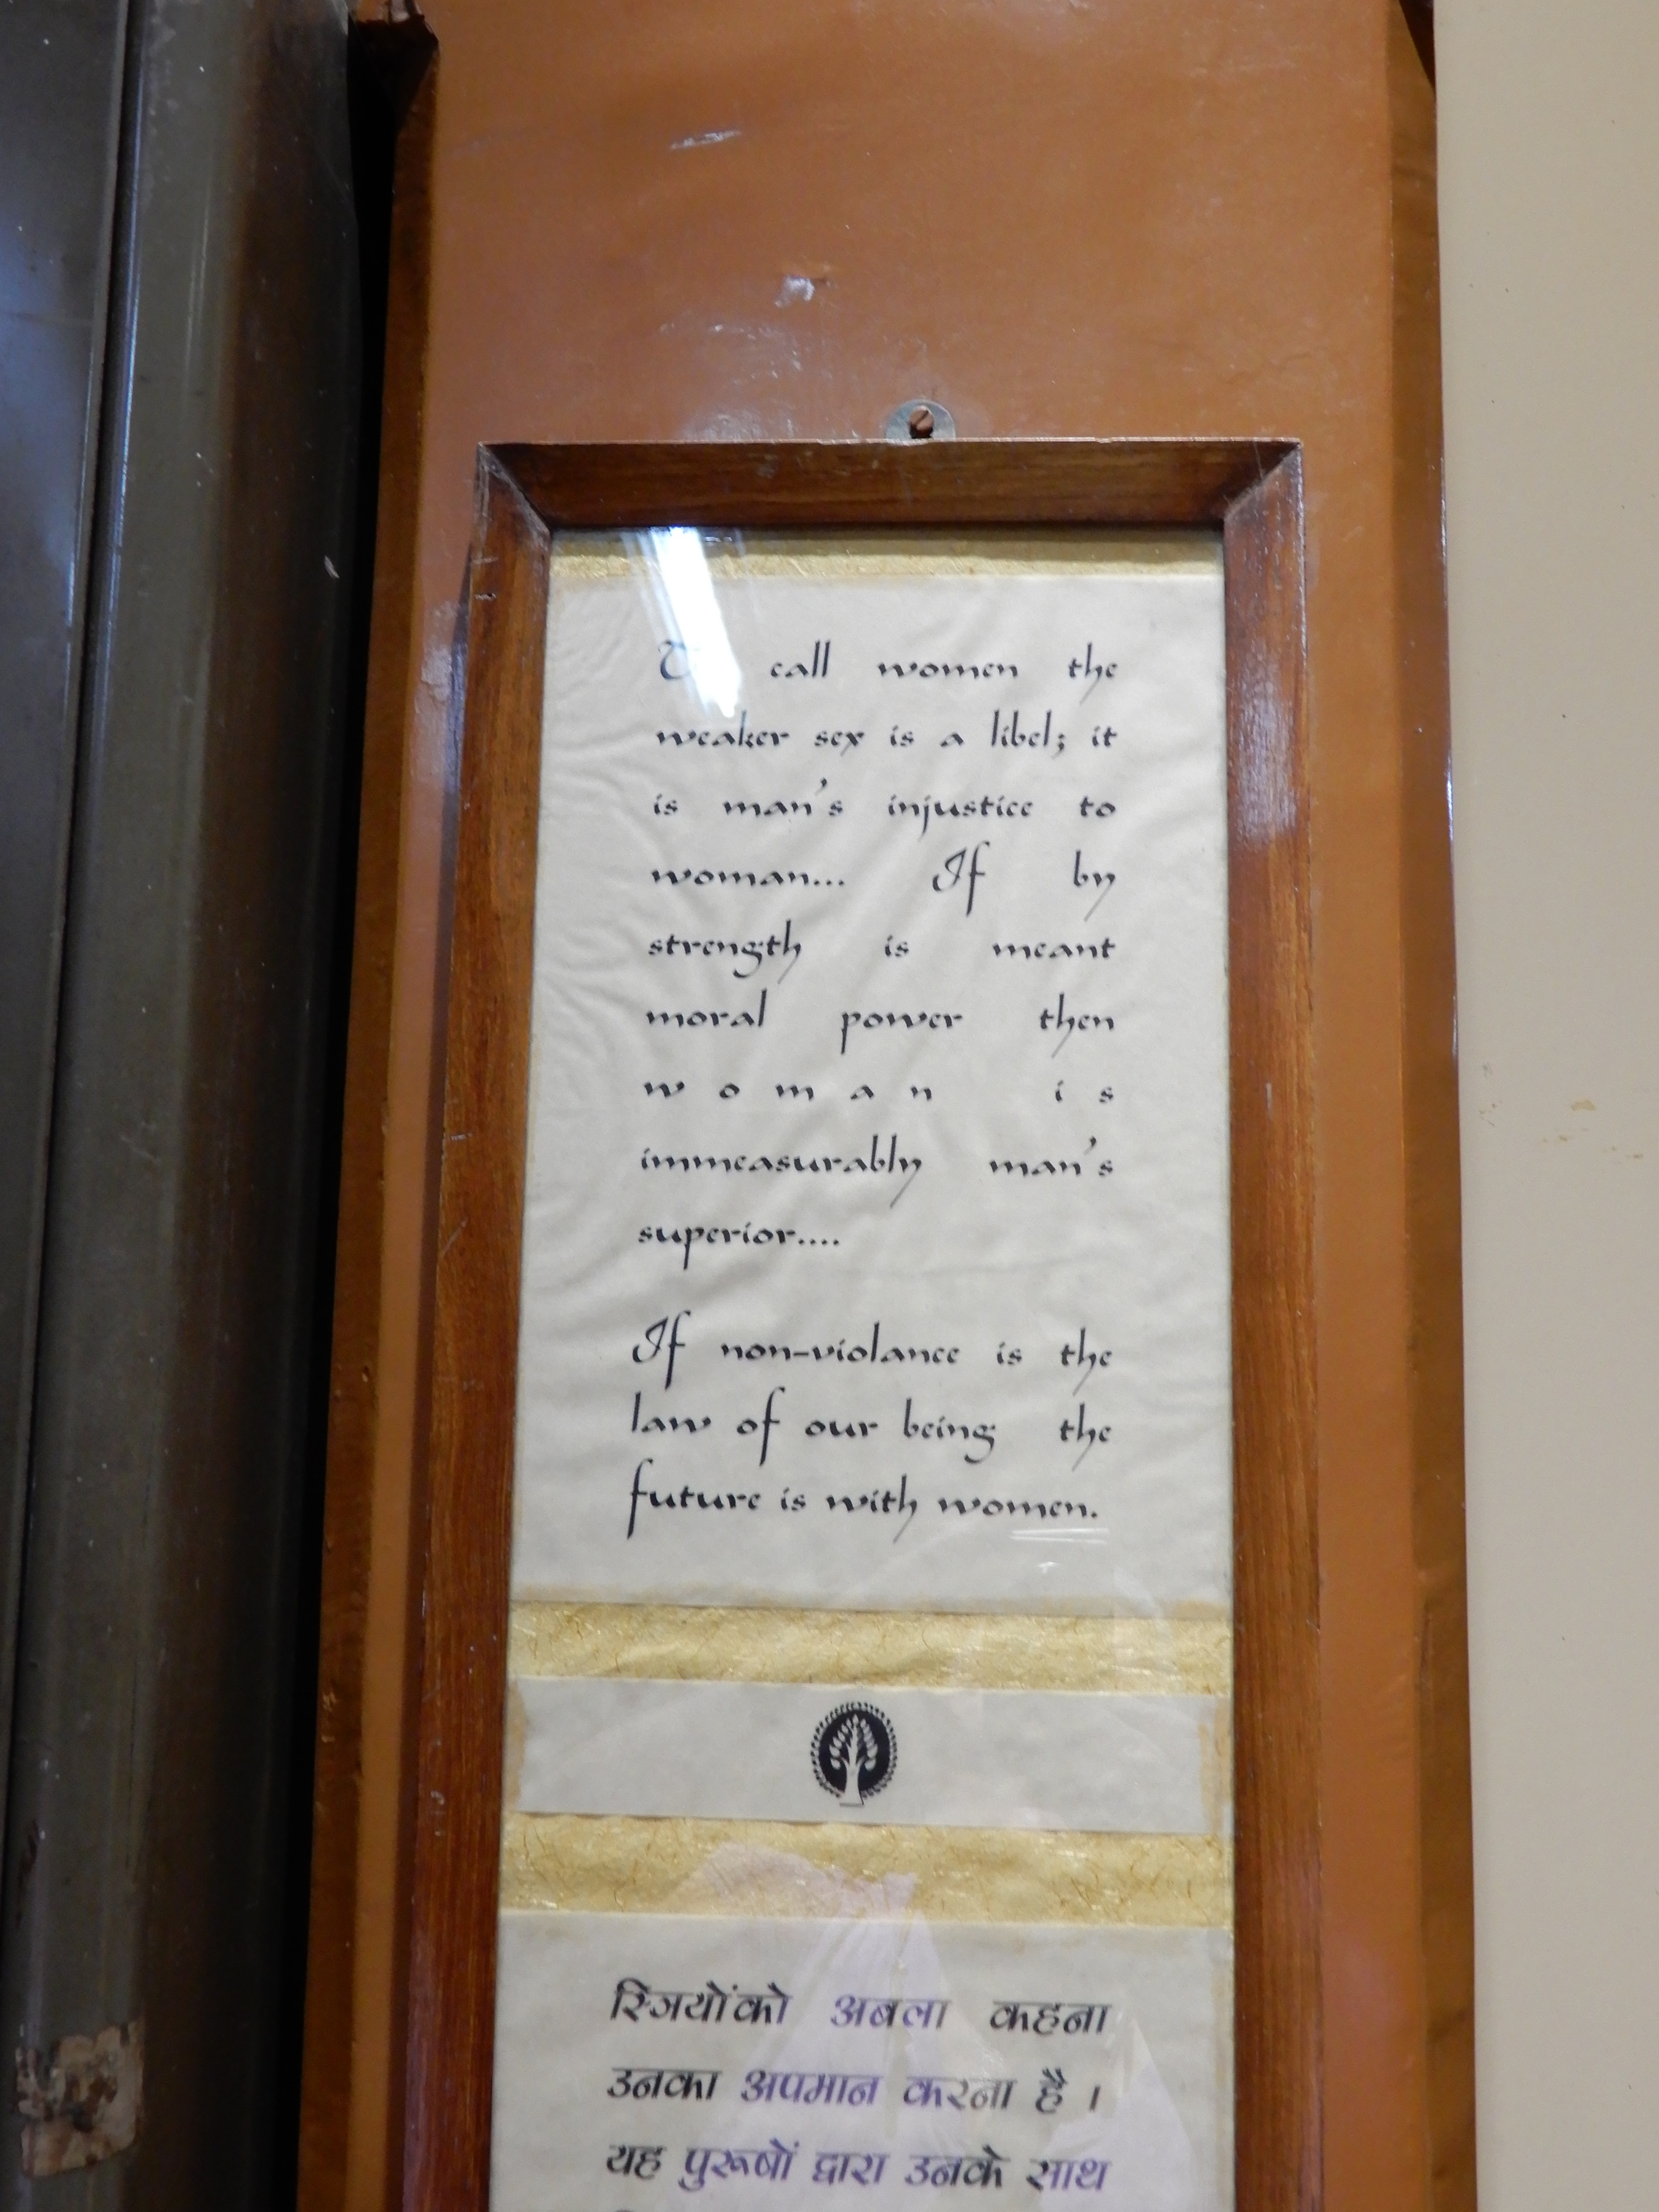 call women the
weaker sex is a libel; it
is man's injustice to
woman... If by
strength is meant
moral power then
woman is
immeasurably man's
superior....
If non-violance is the
law of our being the
future is with women.
स्त्रियोंको अबला कहना
उनका अपमान करना है ।
यह पुरूषों द्वारा उनके साथ